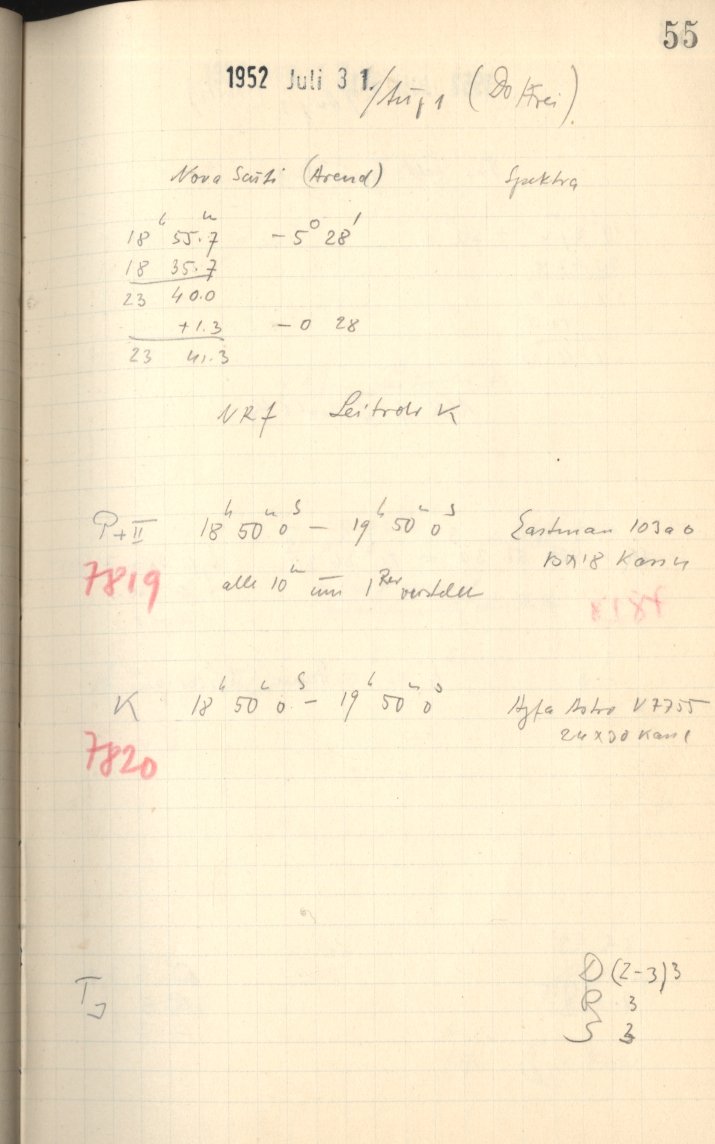 55
1952 Juli 31./Aug 1 (Do/Frei).
Nova Scuti (Arend) Spektra
18h 55.7m -5° 28'
18 35.7
23 40.0
+1.3 -0 28
23 41.3
NRf Leitrohr K
P+II 18h 50m 0s - 19h 50m 0s Eastman 103a0
7819 13x18 Kass 4
alle 10m um 1 Rev verstellt
K 18h 50m 0s - 19h 50m 0s Agfa Astro V7755
7820 24x30 Kass 1
D (2-3) 3
R 3
S 3